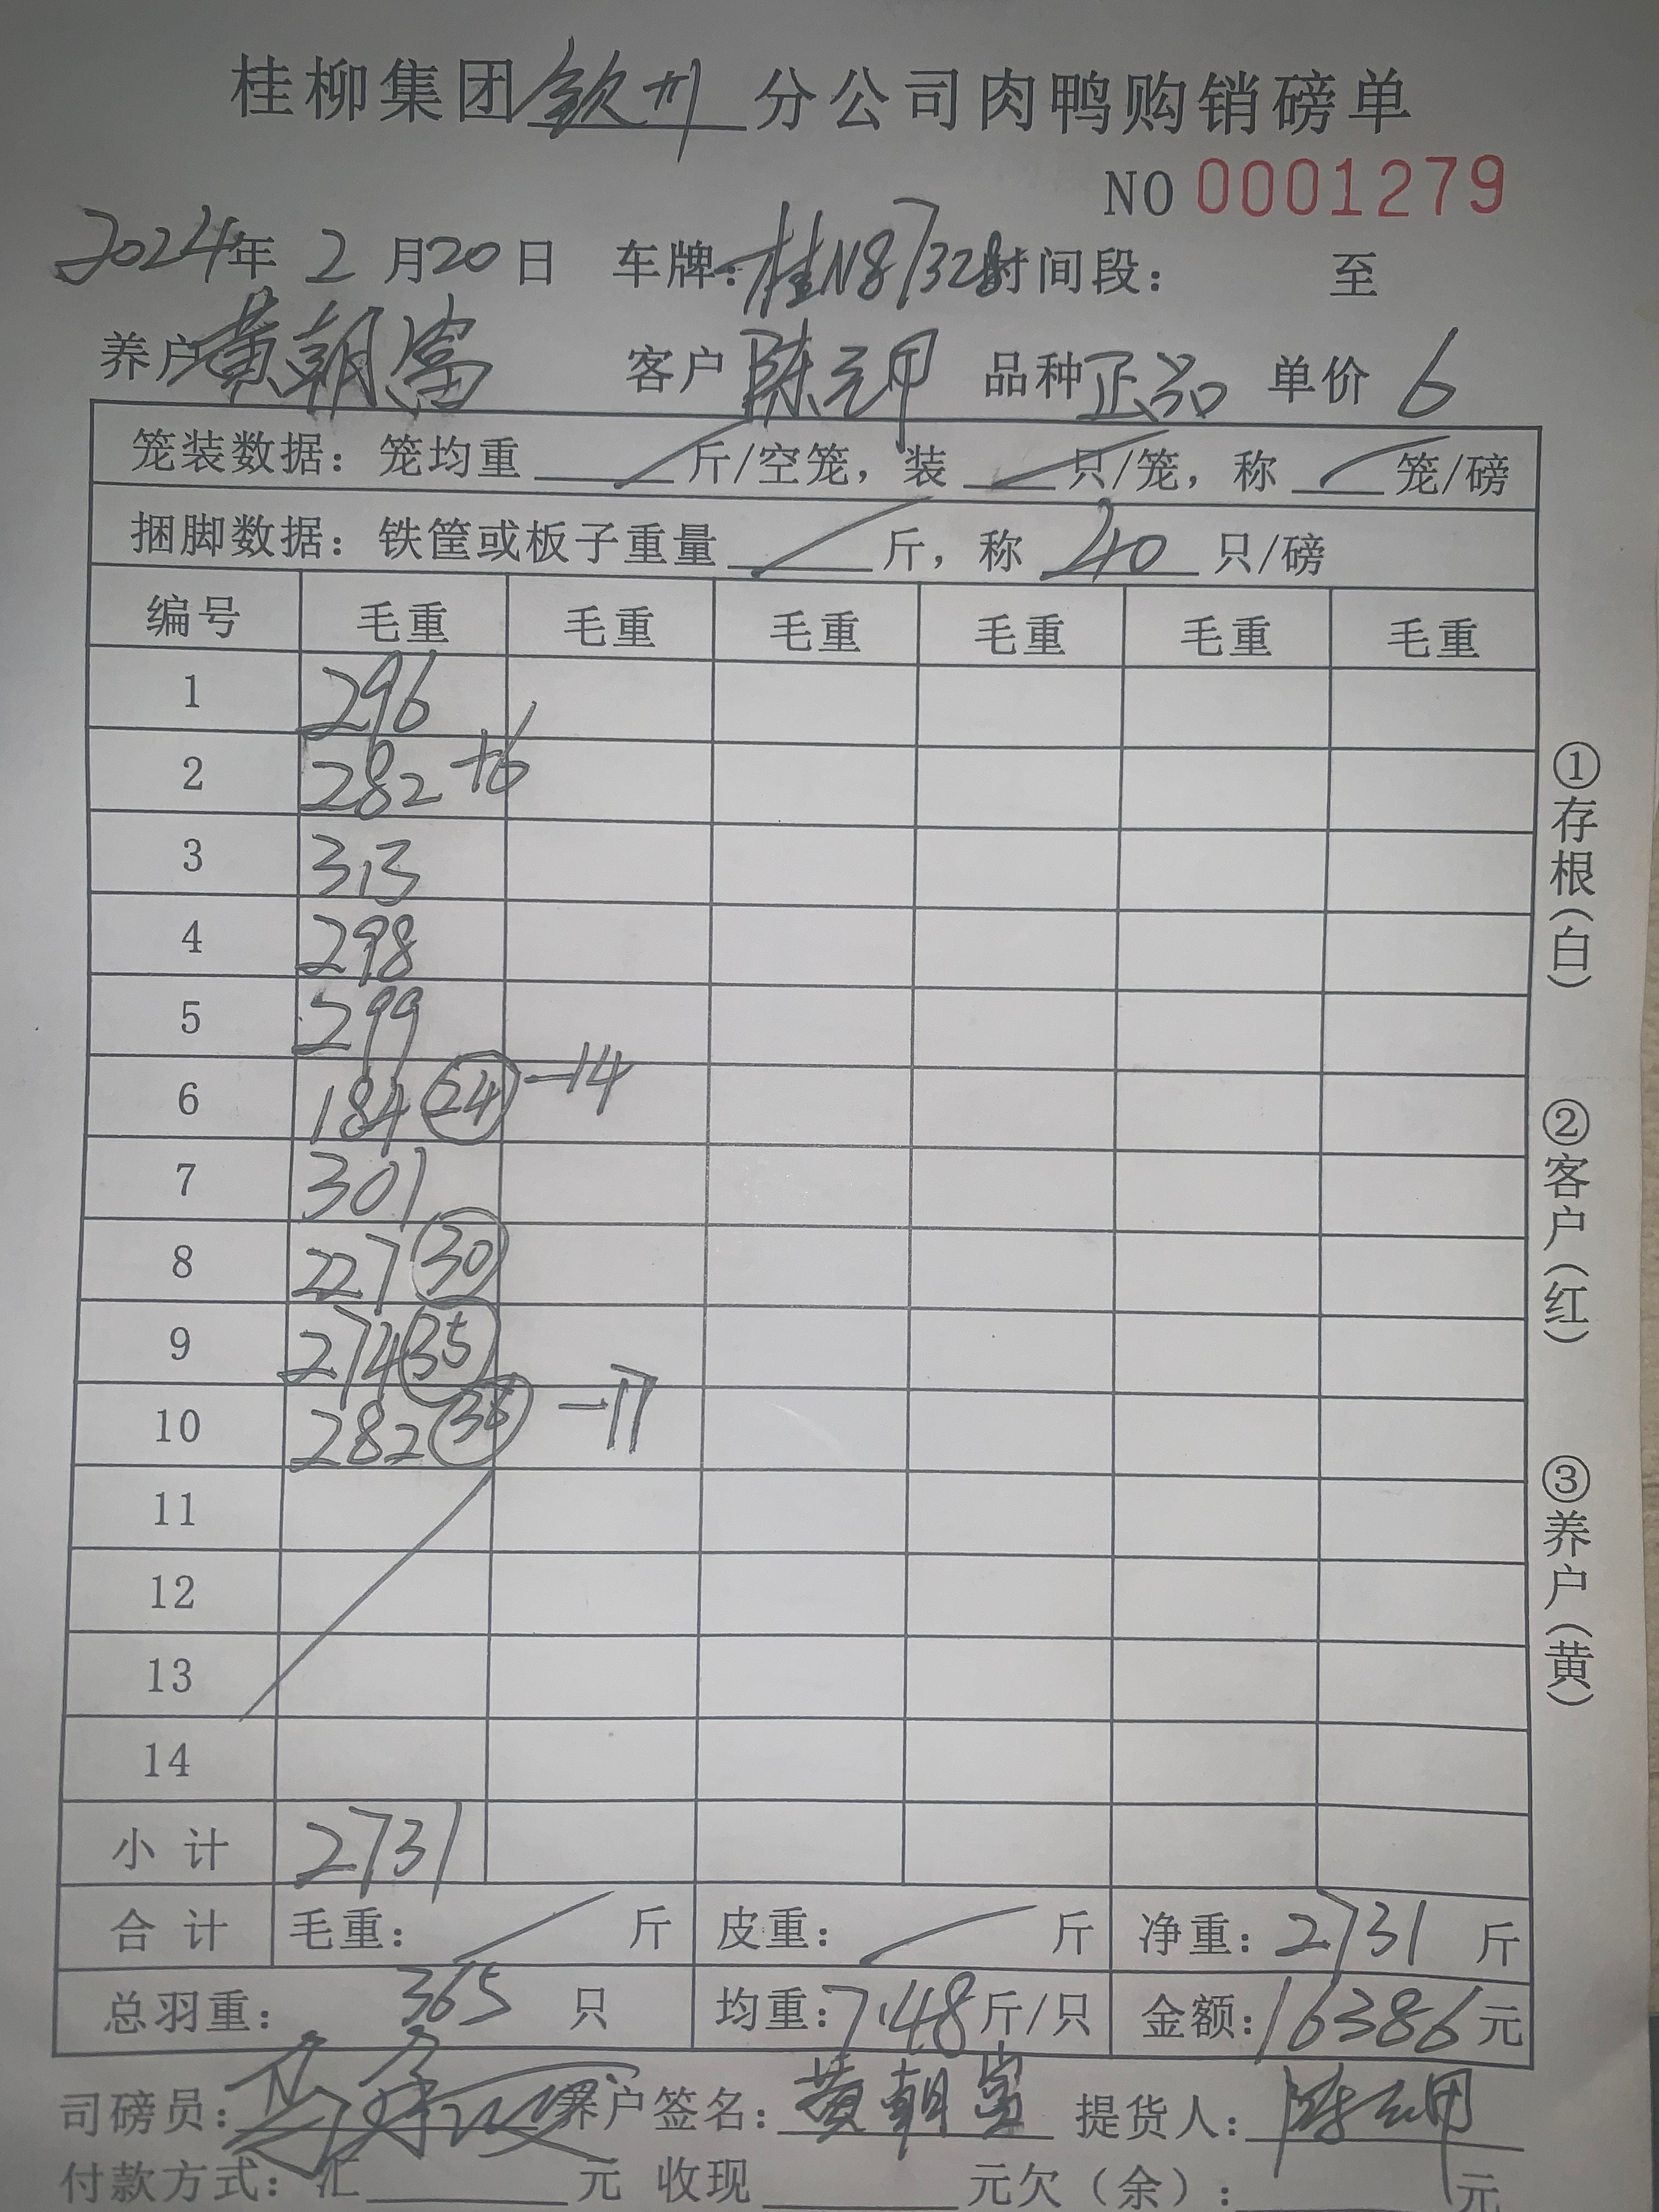 桂柳集团钦州分公司肉鸭购销磅单
NO 0001279
2024年 2 月20日 车牌:桂N8732 时间段: 至
养户黄朝富 客户 陈元甲 品种正品 单价 6
笼装数据:笼均重 / 斤/空笼,装 / 只/笼,称 / 笼/磅
捆脚数据:铁筐或板子重量 / 斤,称 40 只/磅
编号 毛重 毛重 毛重 毛重 毛重 毛重
1 296
2 282 +6
3 313
4 298
5 299
6 184 24 -14
7 301
8 227 30
9 274 35
10 282 -17
11
12
13
14
小计 2731
合计 毛重: / 斤 皮重: / 斤 净重: 2731 斤
总羽重: 365 只 均重:7.48斤/只 金额:16386元
司磅员: 养户签名:黄朝富 提货人:陈元甲
付款方式:汇 元 收现 元欠(余): 元
①存根(白)
②客户(红)
③养户(黄)